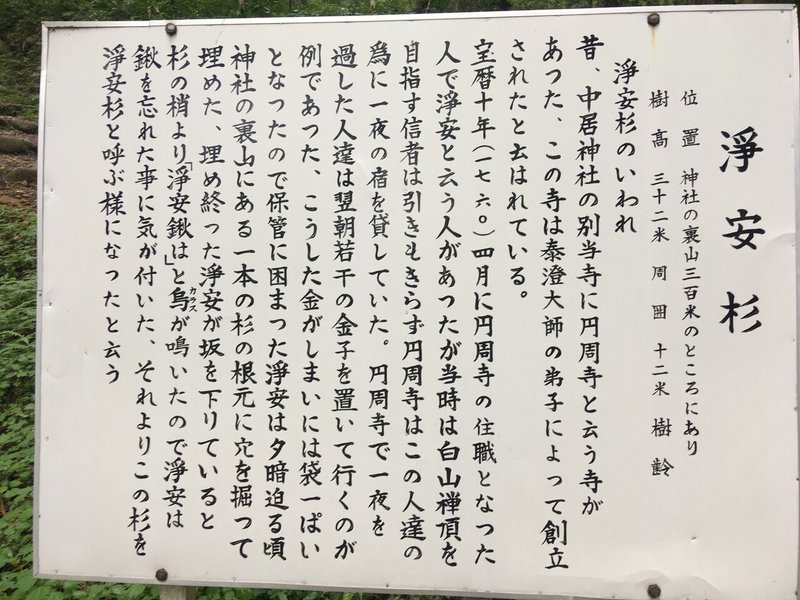 淨安杉
位置 神社の裏山三百米のところにあり
樹高 三十二米 周囲 十二米 樹齢
淨安杉のいわれ
昔、中居神社の別当寺に円周寺と云う寺が
あつた、この寺は泰澄大師の弟子によって創立
されたと云はれている。
宝暦十年(一七六〇)四月に円周寺の住職となった
人で淨安と云う人があつたが当時は白山禅頂を
目指す信者は引きもきらず円周寺はこの人達の
為に一夜の宿を貸していた。円周寺で一夜を
過した人達は翌朝若干の金子を置いて行くのが
例であつた、こうした金がしまいには袋一ぱい
となつたので保管に困まった淨安は夕暗迫る頃
神社の裏山にある一本の杉の根元に穴を掘つて
埋めた、埋め終った淨安が坂を下りていると
杉の梢より「淨安鍬は」と烏が鳴いたので淨安は
カラス
鍬を忘れた事に気が付いた、それよりこの杉を
淨安杉と呼ぶ様になったと云う